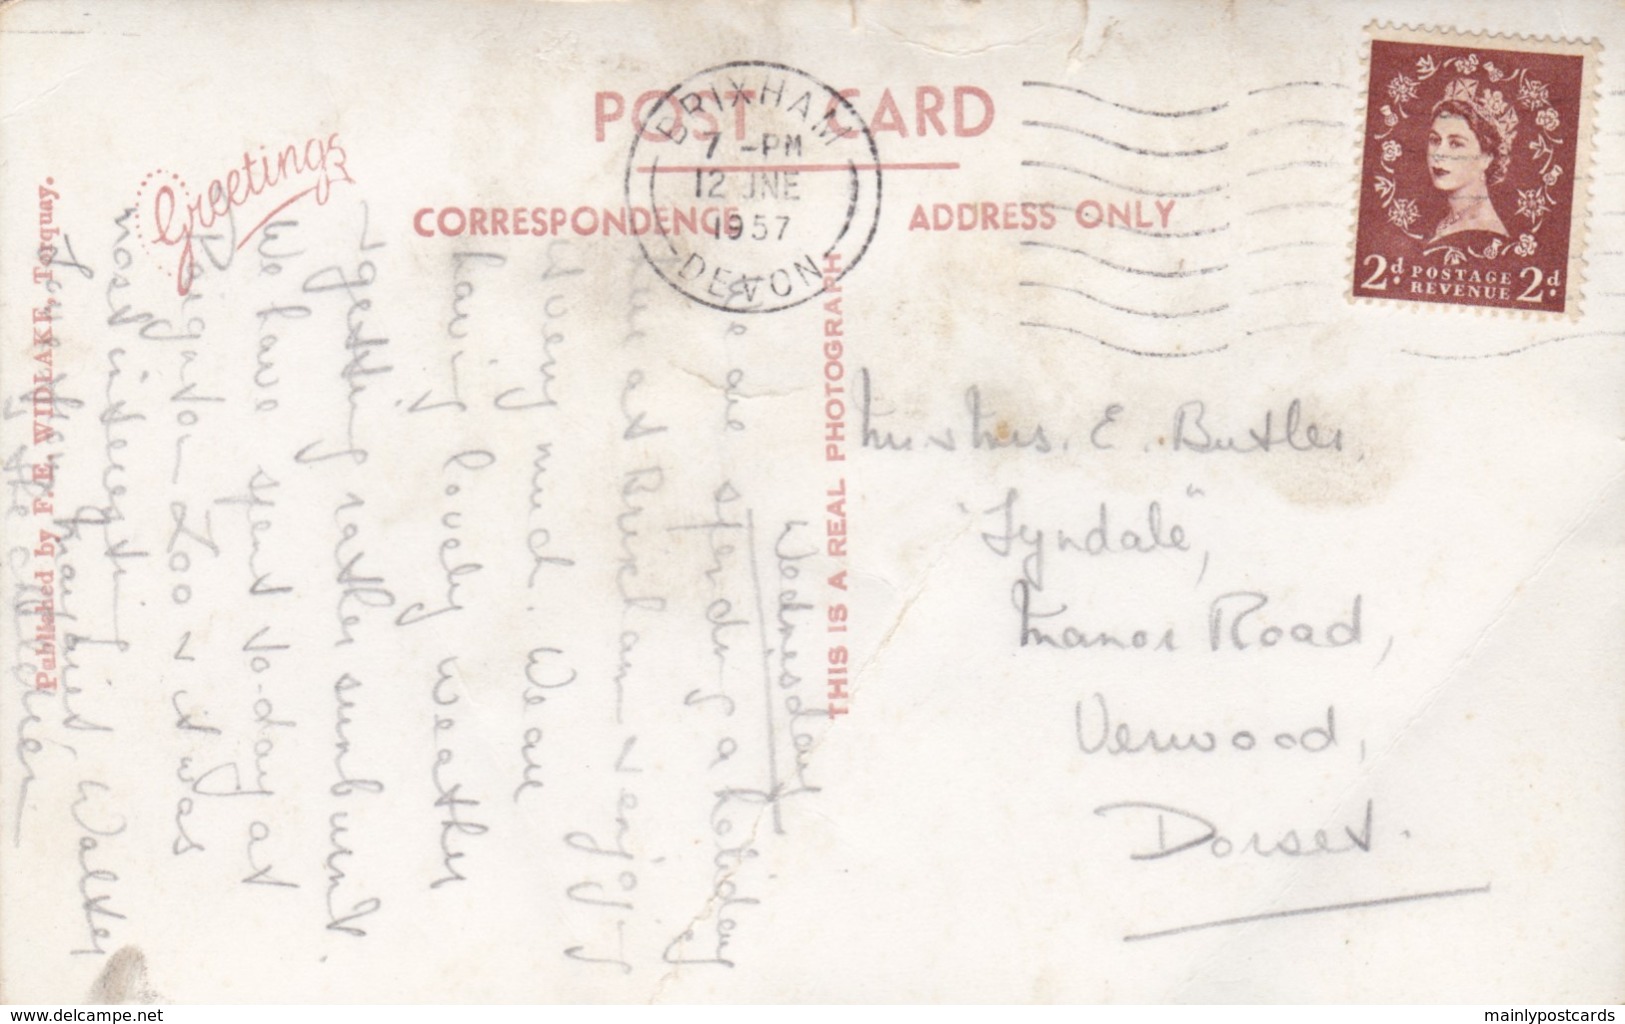 POST CARD
Greetings
CORRESPONDENCE
ADDRESS ONLY
BRIXHAM
7 - PM
12 JNE
1957
DEVON
2d. POSTAGE REVENUE 2d.
Published by F. E. WIDLAKE, Torquay.
THIS IS A REAL PHOTOGRAPH
Wednesday
We are spending a holiday
here at Brixham & enjoying
it very much. We are
having lovely weather
& getting rather sunburnt.
We have spent to-day at
Paignton Zoo & it was
most interesting
from
Margaret, Walter
& the children
Mr & Mrs. E. Butler,
"Tyndale",
Manor Road,
Verwood,
Dorset.
www.delcampe.net
mainlypostcards